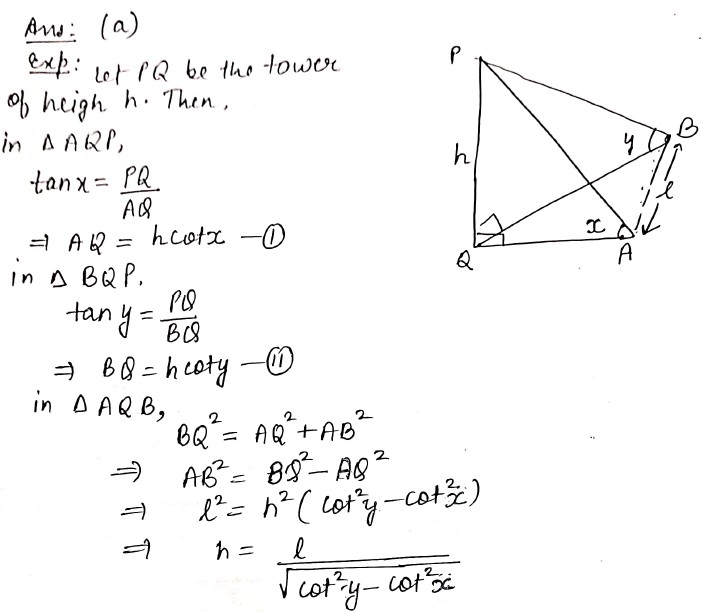 Ans: (a)
Exp: Let PQ be the tower
of heigh h. Then,
in Δ AQP,
tan x = PQ
AQ
⇒ AQ = h cot x — (I)
in Δ BQP,
tan y = PQ
BQ
⇒ BQ = h cot y — (II)
in Δ AQB,
BQ² = AQ² + AB²
⇒ AB² = BQ² − AQ²
⇒ l² = h² ( cot²y − cot²x )
⇒ h = l
√ cot²y − cot²x
P
B
y
h
l
x
Q
A